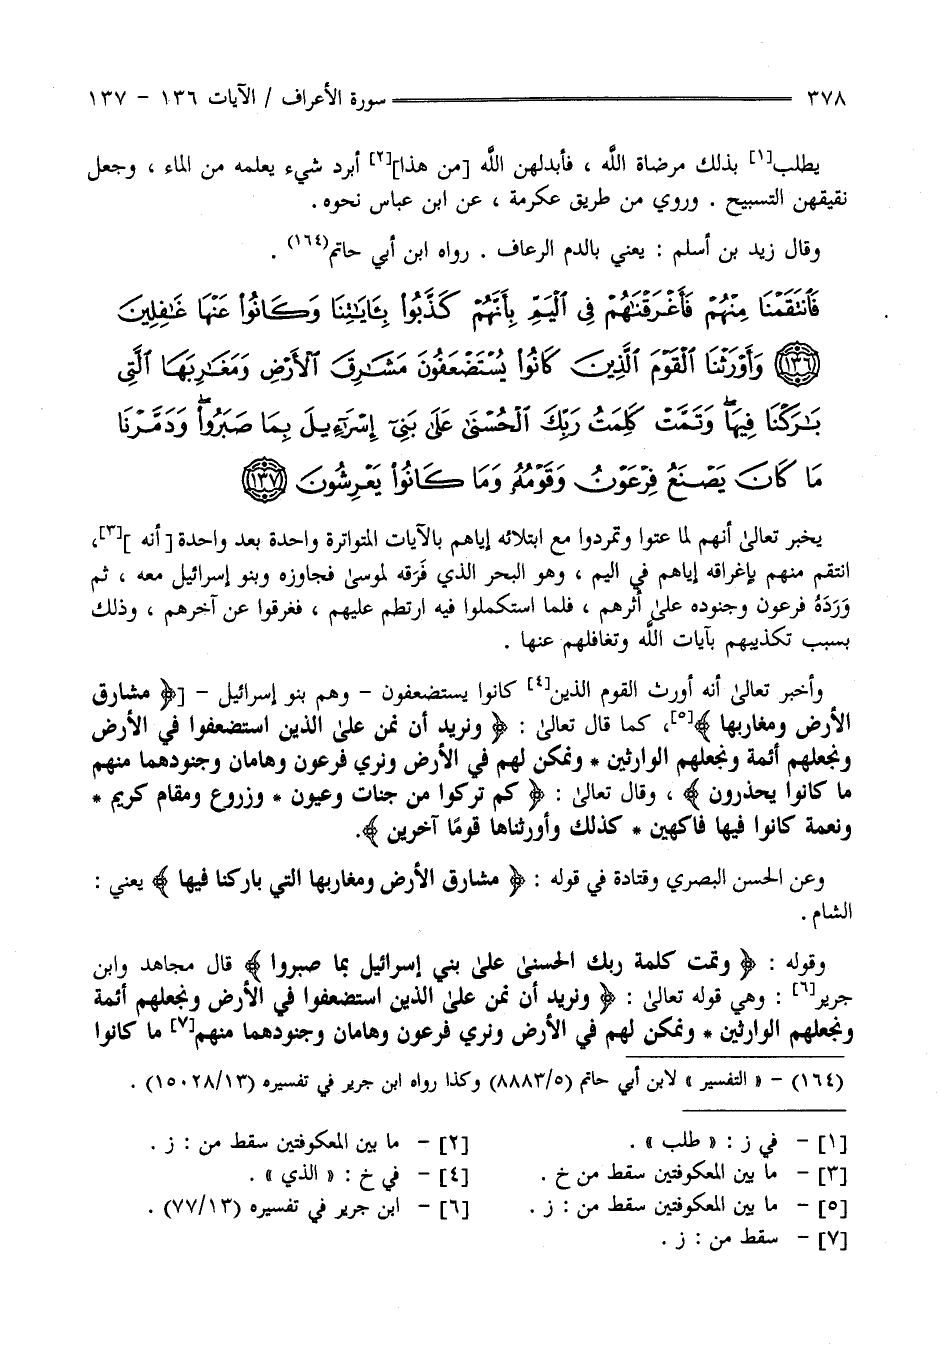 ٣٧٨ سورة الأعراف / الآيات ١٣٦ - ١٣٧
يطلب[١] بذلك مرضاة اللَّه ، فأبدلهن اللَّه [من هذا][٢] أبرد شيء يعلمه من الماء ، وجعل
نقيقهن التسبيح . وروي من طريق عكرمة ، عن ابن عباس نحوه .
وقال زيد بن أسلم : يعني بالدم الرعاف . رواه ابن أبي حاتم(١٦٤) .
فَٱنتَقَمْنَا مِنْهُمْ فَأَغْرَقْنَٰهُمْ فِى ٱلْيَمِّ بِأَنَّهُمْ كَذَّبُوا۟ بِـَٔايَٰتِنَا وَكَانُوا۟ عَنْهَا غَٰفِلِينَ
﴿١٣٦﴾ وَأَوْرَثْنَا ٱلْقَوْمَ ٱلَّذِينَ كَانُوا۟ يُسْتَضْعَفُونَ مَشَٰرِقَ ٱلْأَرْضِ وَمَغَٰرِبَهَا ٱلَّتِى
بَٰرَكْنَا فِيهَا ۖ وَتَمَّتْ كَلِمَتُ رَبِّكَ ٱلْحُسْنَىٰ عَلَىٰ بَنِىٓ إِسْرَٰٓءِيلَ بِمَا صَبَرُوا۟ ۖ وَدَمَّرْنَا
مَا كَانَ يَصْنَعُ فِرْعَوْنُ وَقَوْمُهُۥ وَمَا كَانُوا۟ يَعْرِشُونَ ﴿١٣٧﴾
يخبر تعالىٰ أنهم لما عتوا وتمردوا مع ابتلائه إياهم بالآيات المتواترة واحدة بعد واحدة [ أنه ][٣]،
انتقم منهم بإغراقه إياهم في اليم ، وهو البحر الذي فَرَقه لموسىٰ فجاوزه وبنو إسرائيل معه ، ثم
وَرَدَهُ فرعون وجنوده علىٰ أثرهم ، فلما استكملوا فيه ارتطم عليهم ، فغرقوا عن آخرهم ، وذلك
بسبب تكذيبهم بآيات اللَّه وتغافلهم عنها .
وأخبر تعالىٰ أنه أورث القوم الذين[٤] كانوا يستضعفون - وهم بنو إسرائيل - [﴿ مشارق
الأرض ومغاربها ﴾][٥]، كما قال تعالىٰ : ﴿ ونريد أن نمن علىٰ الذين استضعفوا في الأرض
ونجعلهم أئمة ونجعلهم الوارثين * ونمكن لهم في الأرض ونري فرعون وهامان وجنودهما منهم
ما كانوا يحذرون ﴾ ، وقال تعالىٰ : ﴿ كم تركوا من جنات وعيون * وزروع ومقام كريم *
ونعمة كانوا فيها فاكهين * كذلك وأورثناها قومًا آخرين ﴾.
وعن الحسن البصري وقتادة في قوله : ﴿ مشارق الأرض ومغاربها التي باركنا فيها ﴾ يعني :
الشام .
وقوله : ﴿ وتمت كلمة ربك الحسنىٰ علىٰ بني إسرائيل بما صبروا ﴾ قال مجاهد وابن
جرير[٦] : وهي قوله تعالىٰ : ﴿ ونريد أن نمن علىٰ الذين استضعفوا في الأرض ونجعلهم أئمة
ونجعلهم الوارثين * ونمكن لهم في الأرض ونري فرعون وهامان وجنودهما منهم[٧] ما كانوا
(١٦٤) - « التفسير » لابن أبي حاتم (٨٨٨٣/٥) وكذا رواه ابن جرير في تفسيره (١٥٠٢٨/١٣) .
[١] - في ز : « طلب » . [٢] - ما بين المعكوفتين سقط من : ز .
[٣] - ما بين المعكوفتين سقط من خ . [٤] - في خ : « الذي » .
[٥] - ما بين المعكوفتين سقط من : ز . [٦] - ابن جرير في تفسيره (٧٧/١٣) .
[٧] - سقط من : ز .